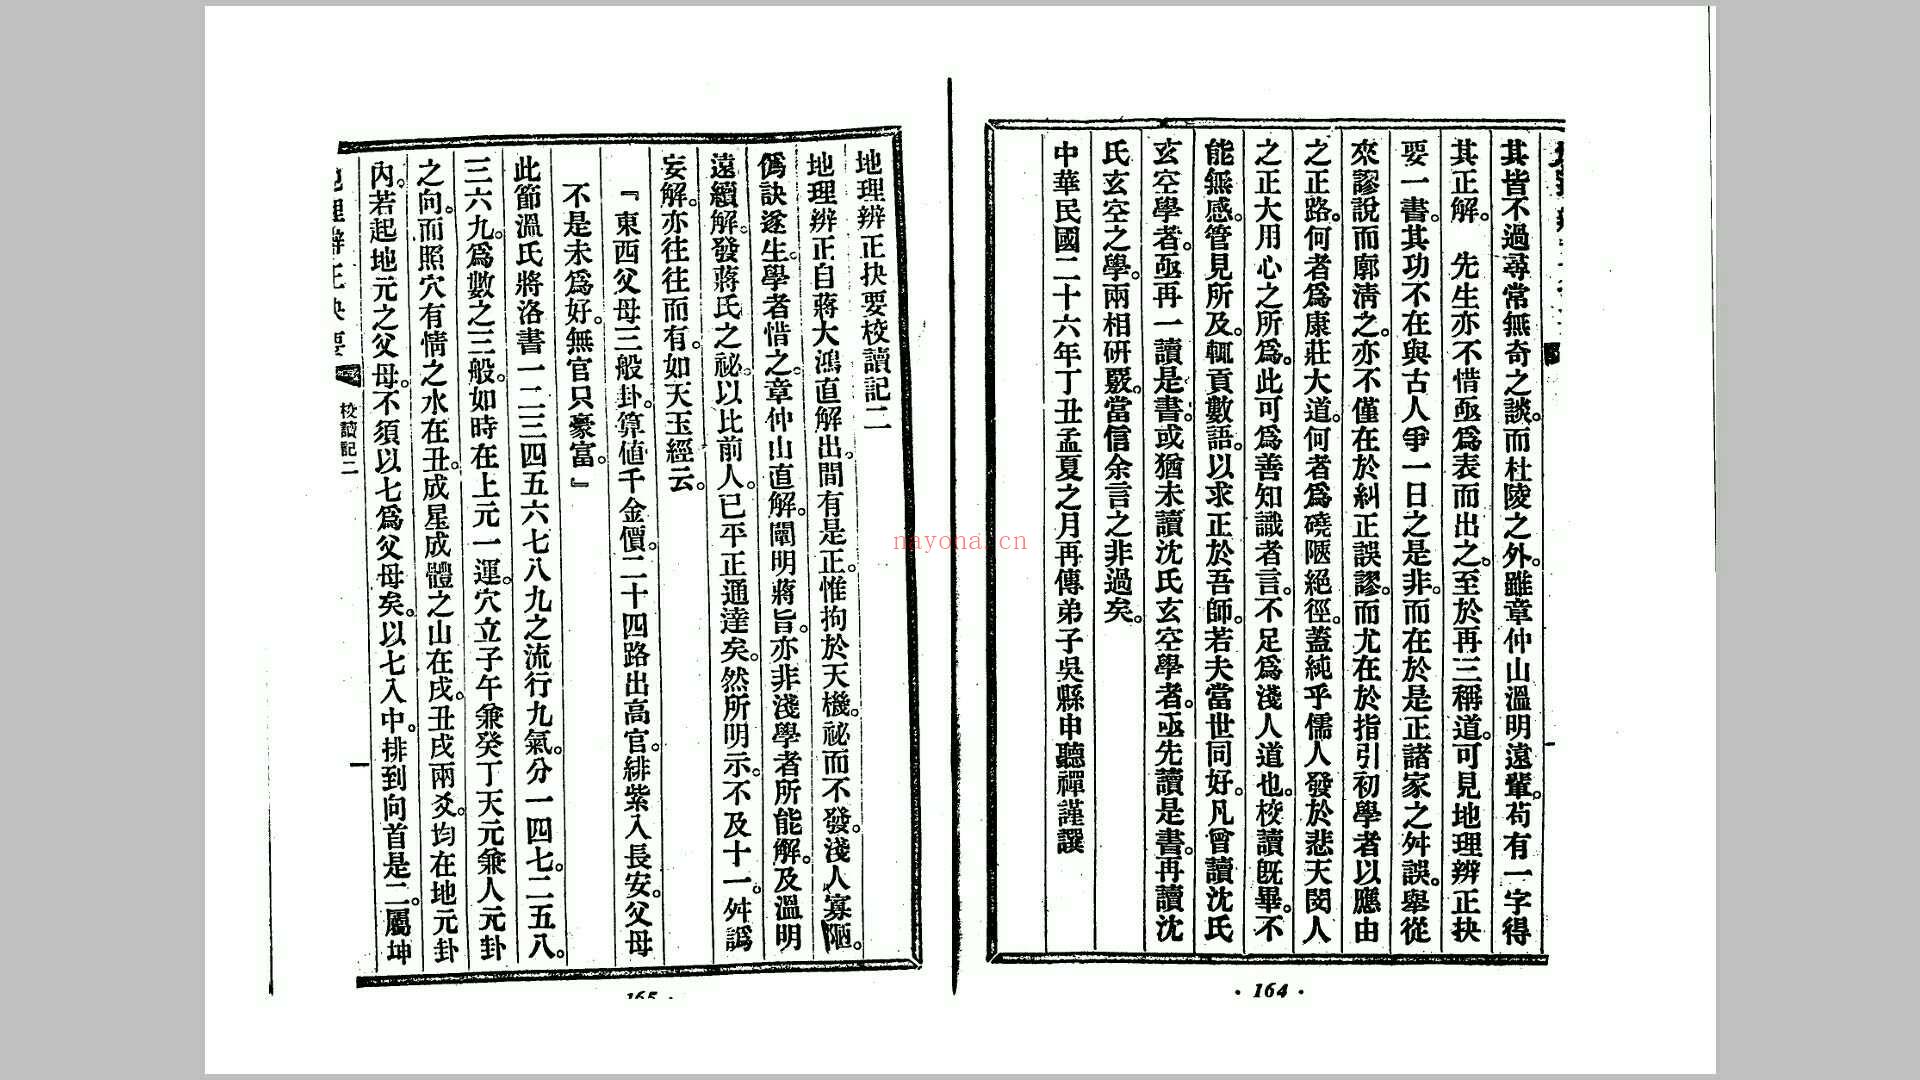 其皆不過尋常無奇之談。而杜陵之外。雖章仲山溫明遠輩。苟有一字得
其正解。　先生亦不惜亟爲表而出之。至於再三稱道。可見地理辨正抉
要一書。其功不在與古人爭一日之是非。而在於是正諸家之舛誤。舉從
來謬說而廓淸之。亦不僅在於糾正誤謬。而尤在於指引初學者以應由
之正路。何者爲康莊大道。何者爲磽陿絕徑。蓋純乎儒人發於悲天閔人
之正大用心之所爲。此可爲善知識者言。不足爲淺人道也。校讀旣畢。不
能無感。管見所及。輒貢數語。以求正於吾師。若夫當世同好。凡曾讀沈氏
玄空學者。亟再一讀是書。或猶未讀沈氏玄空學者。亟先讀是書。再讀沈
氏玄空之學。兩相研覈。當信余言之非過矣。
中華民國二十六年丁丑孟夏之月再傳弟子吳縣申聽禪謹譔
· 164 ·
地理辨正抉要校讀記二
地理辨正自蔣大鴻直解出。間有是正。惟拘於天機。祕而不發。淺人寡陋。
僞訣遂生。學者惜之。章仲山直解。闡明蔣旨。亦非淺學者所能解。及溫明
遠續解。發蔣氏之祕。以比前人。已平正通達矣。然所明示。不及十一。舛譌
妄解。亦往往而有。如天玉經云。
『東西父母三般卦。算值千金價。二十四路出高官。緋紫入長安。父母
不是未爲好。無官只豪富。』
此節溫氏將洛書一二三四五六七八九之流行九氣。分一四七。二五八。
三六九。爲數之三般。如時在上元一運。穴立子午兼癸丁天元兼人元卦
之向。而照穴有情之水在丑。成星成體之山在戌。丑戌兩爻。均在地元卦
內。若起地元之父母。不須以七爲父母矣。以七入中。排到向首是二。屬坤
地理辨正抉要
校讀記二
一
165 ·
nayona.cn